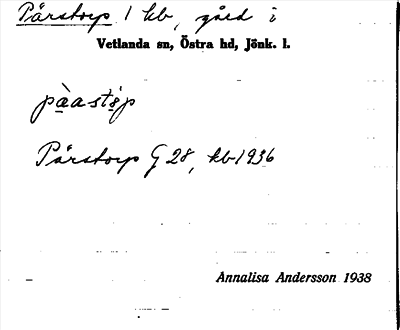 Pärstorp 1 kb, gård i
Vetlanda sn, Östra hd, Jönk. l.
pàastòp
Pärstorp G 28, kb 1936
Annalisa Andersson 1938